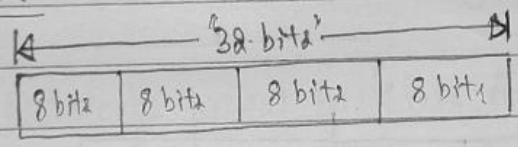 "32-bits"
8 bits 8 bits 8 bits 8 bits